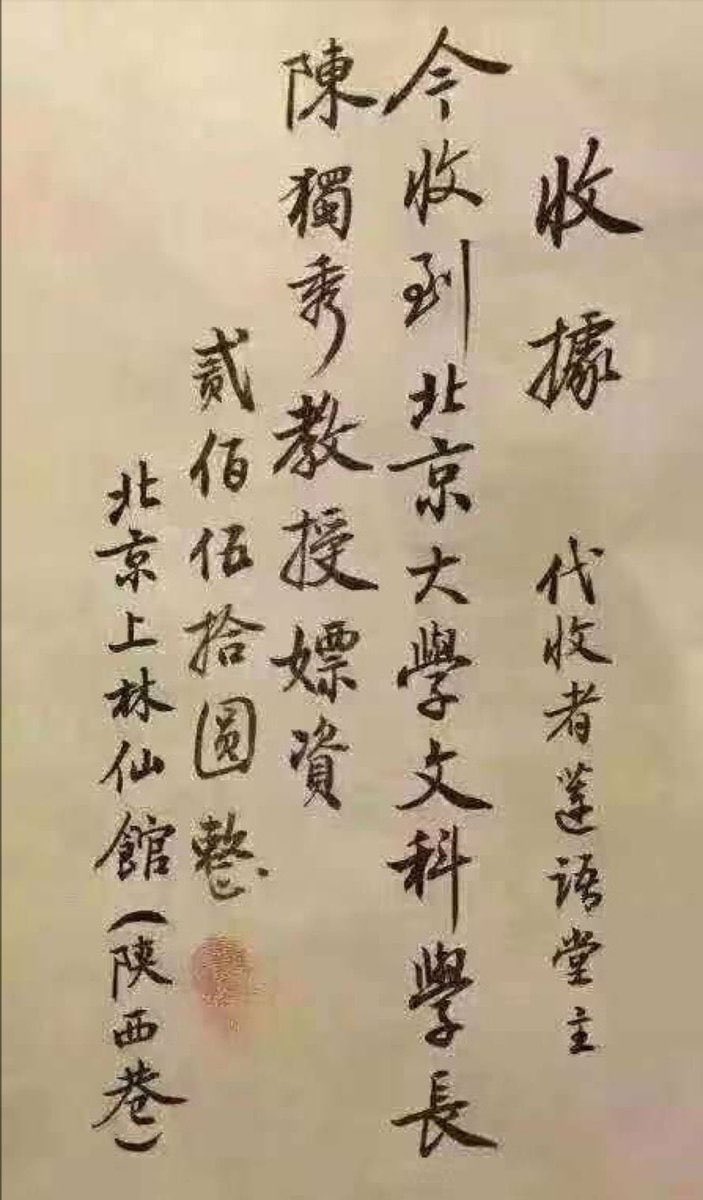 收據 代收者蓮語堂主
今收到北京大學文科學長
陳獨秀教授嫖資
貳佰伍拾圓整
北京上林仙館（陝西巷）